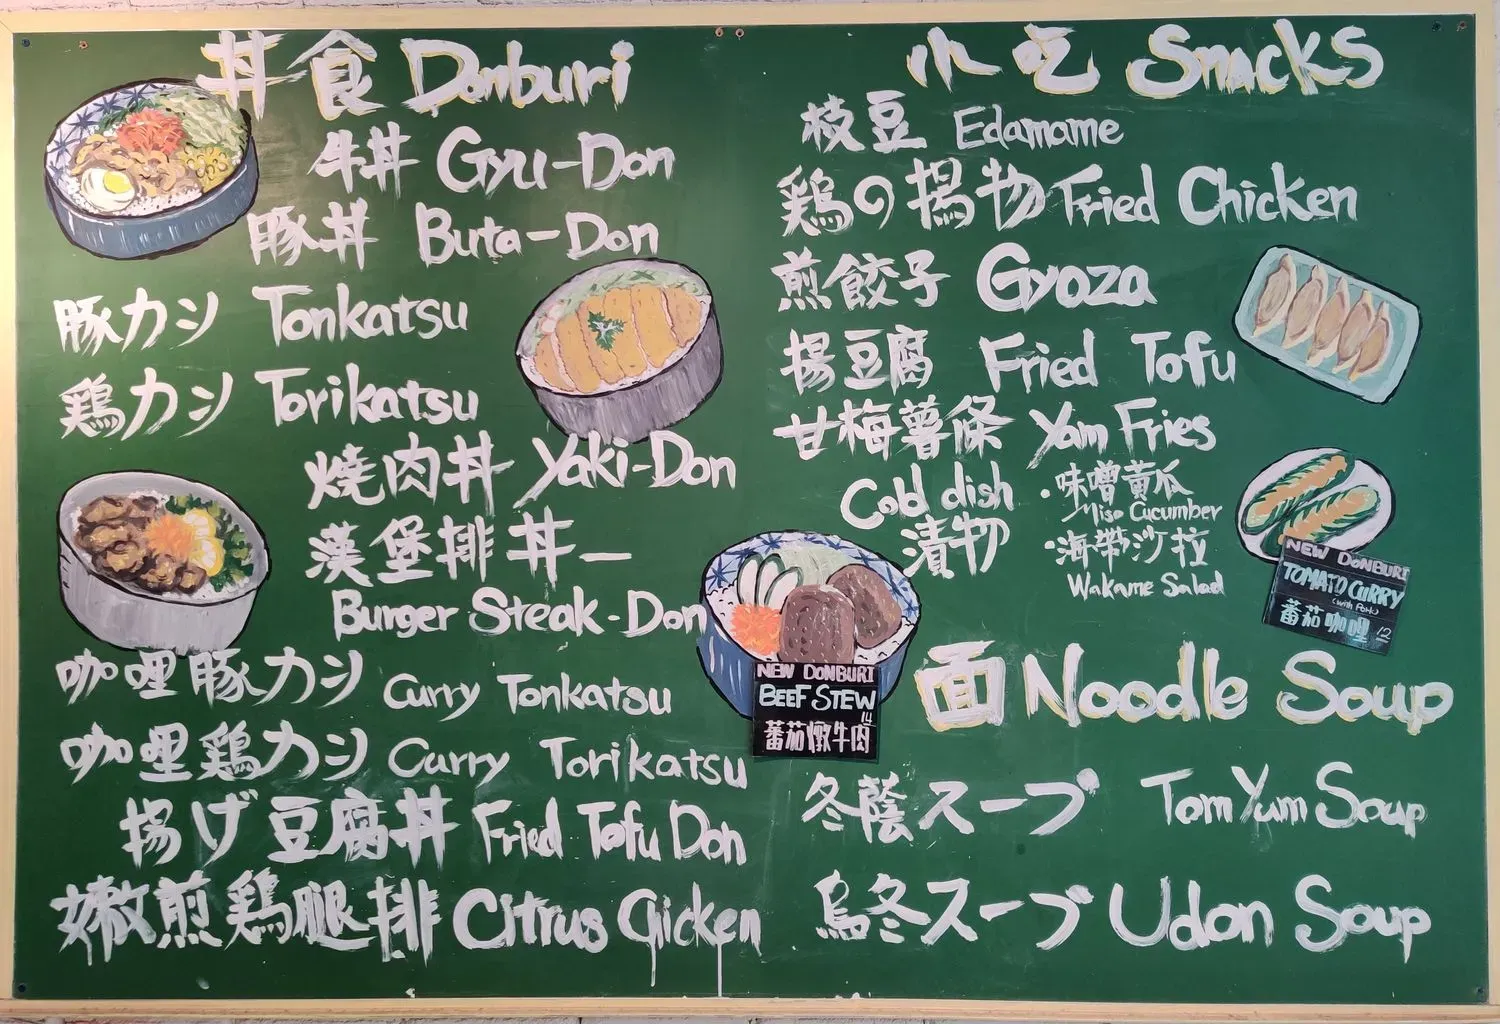 丼食 Donburi
牛丼 Gyu-Don
豚丼 Buta-Don
豚カシ Tonkatsu
鶏カシ Torikatsu
焼肉丼 Yaki-Don
漢堡排丼-
Burger Steak-Don
咖哩豚カシ Curry Tonkatsu
咖哩鶏カシ Curry Torikatsu
揚げ豆腐丼 Fried Tofu Don
嫩煎鶏腿排 Citrus Chicken
NEW DONBURI
BEEF STEW
14
蕃茄燉牛肉
小吃 Snacks
枝豆 Edamame
鶏の揚物 Fried Chicken
煎餃子 Gyoza
揚豆腐 Fried Tofu
甘梅薯條 Yam Fries
Cold dish
漬物
・味噌黄瓜
Miso Cucumber
・海帶沙拉
Wakame Salad
NEW DONBURI
TOMATO CURRY
(with Pork)
蕃茄咖哩 12
面 Noodle Soup
冬蔭スープ Tom Yum Soup
烏冬スープ Udon Soup